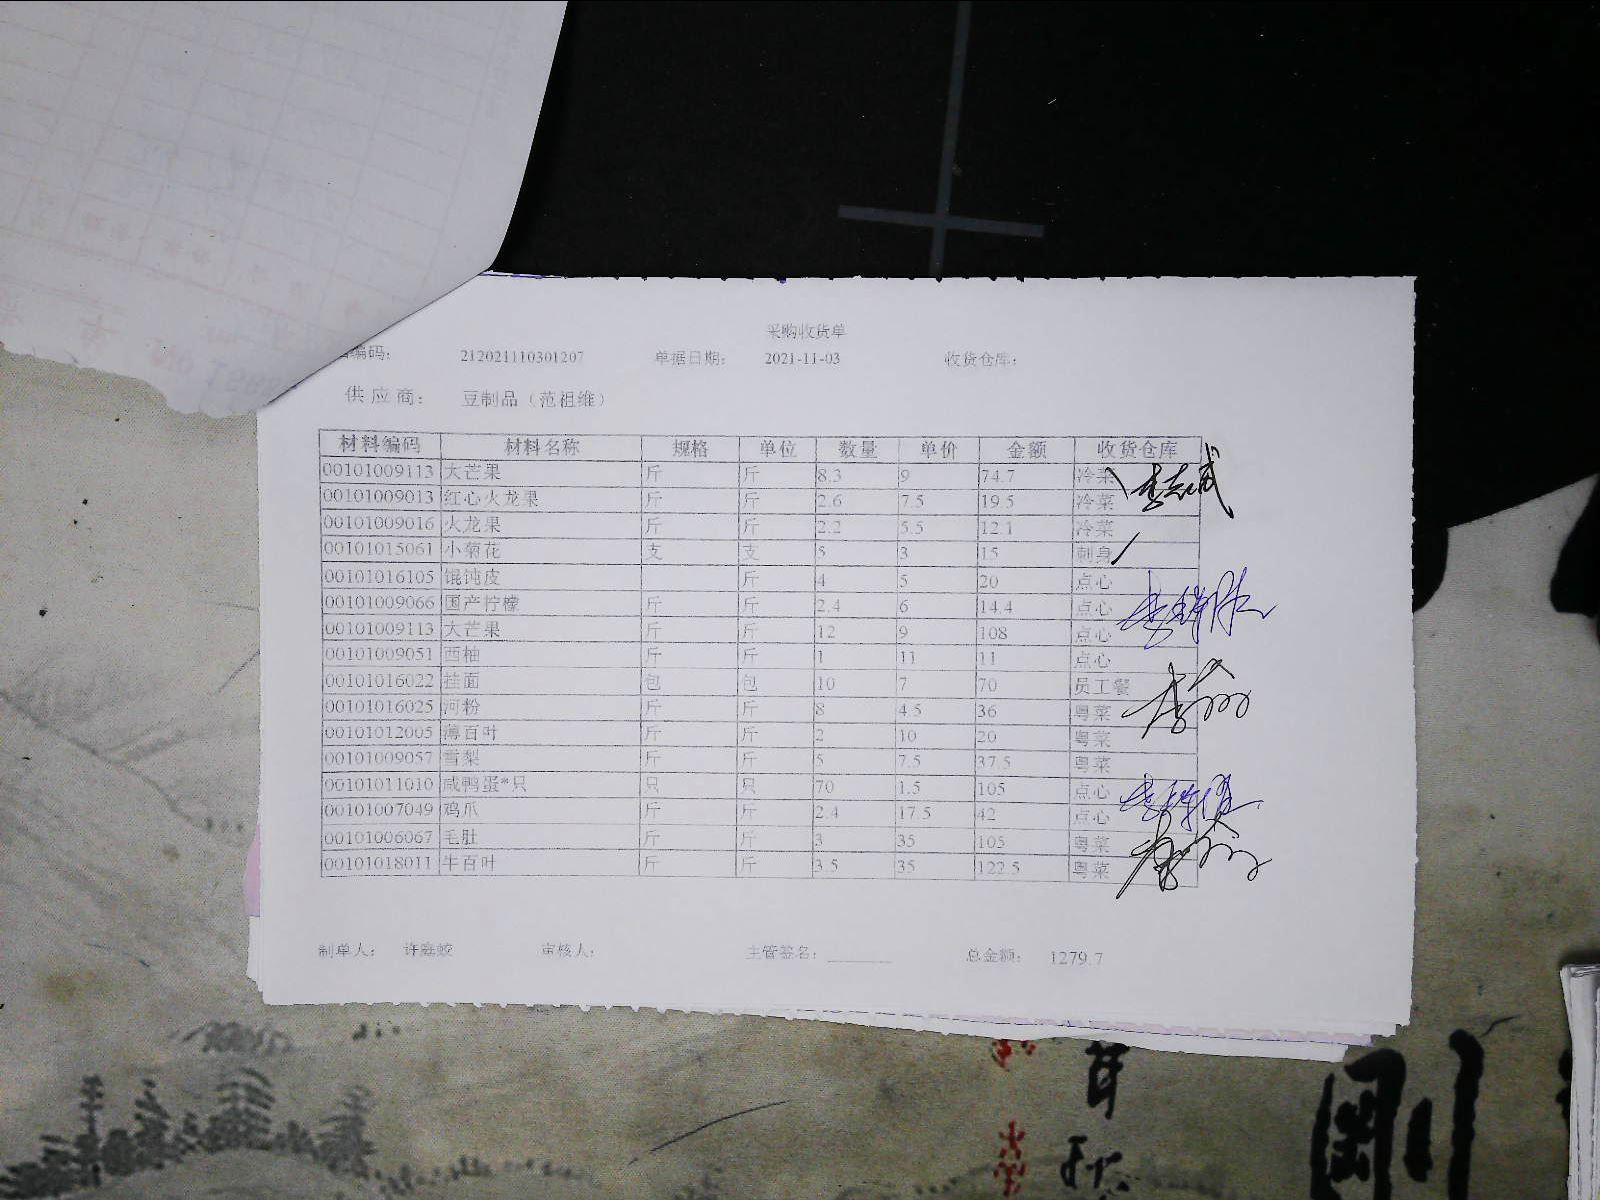 采购收货单
编码: 212021110301207 单据日期: 2021-11-03 收货仓库:
供应商: 豆制品（范祖维）
材料编码 材料名称 规格 单位 数量 单价 金额 收货仓库
00101009113 大芒果 斤 斤 8.3 9 74.7 冷菜
00101009013 红心火龙果 斤 斤 2.6 7.5 19.5 冷菜
00101009016 火龙果 斤 斤 2.2 5.5 12.1 冷菜
00101015061 小菊花 支 支 5 3 15 刺身
00101016105 馄饨皮 斤 4 5 20 点心
00101009066 国产柠檬 斤 斤 2.4 6 14.4 点心
00101009113 大芒果 斤 斤 12 9 108 点心
00101009051 西柚 斤 斤 1 11 11 点心
00101016022 挂面 包 包 10 7 70 员工餐
00101016025 河粉 斤 斤 8 4.5 36 粤菜
00101012005 薄百叶 斤 斤 2 10 20 粤菜
00101009057 雪梨 斤 斤 5 7.5 37.5 粤菜
00101011010 咸鸭蛋*只 只 只 70 1.5 105 点心
00101007049 鸡爪 斤 斤 2.4 17.5 42 点心
00101006067 毛肚 斤 斤 3 35 105 粤菜
00101018011 牛百叶 斤 斤 3.5 35 122.5 粤菜
制单人: 许庭蛟 审核人: 主管签名: 总金额: 1279.7
剛